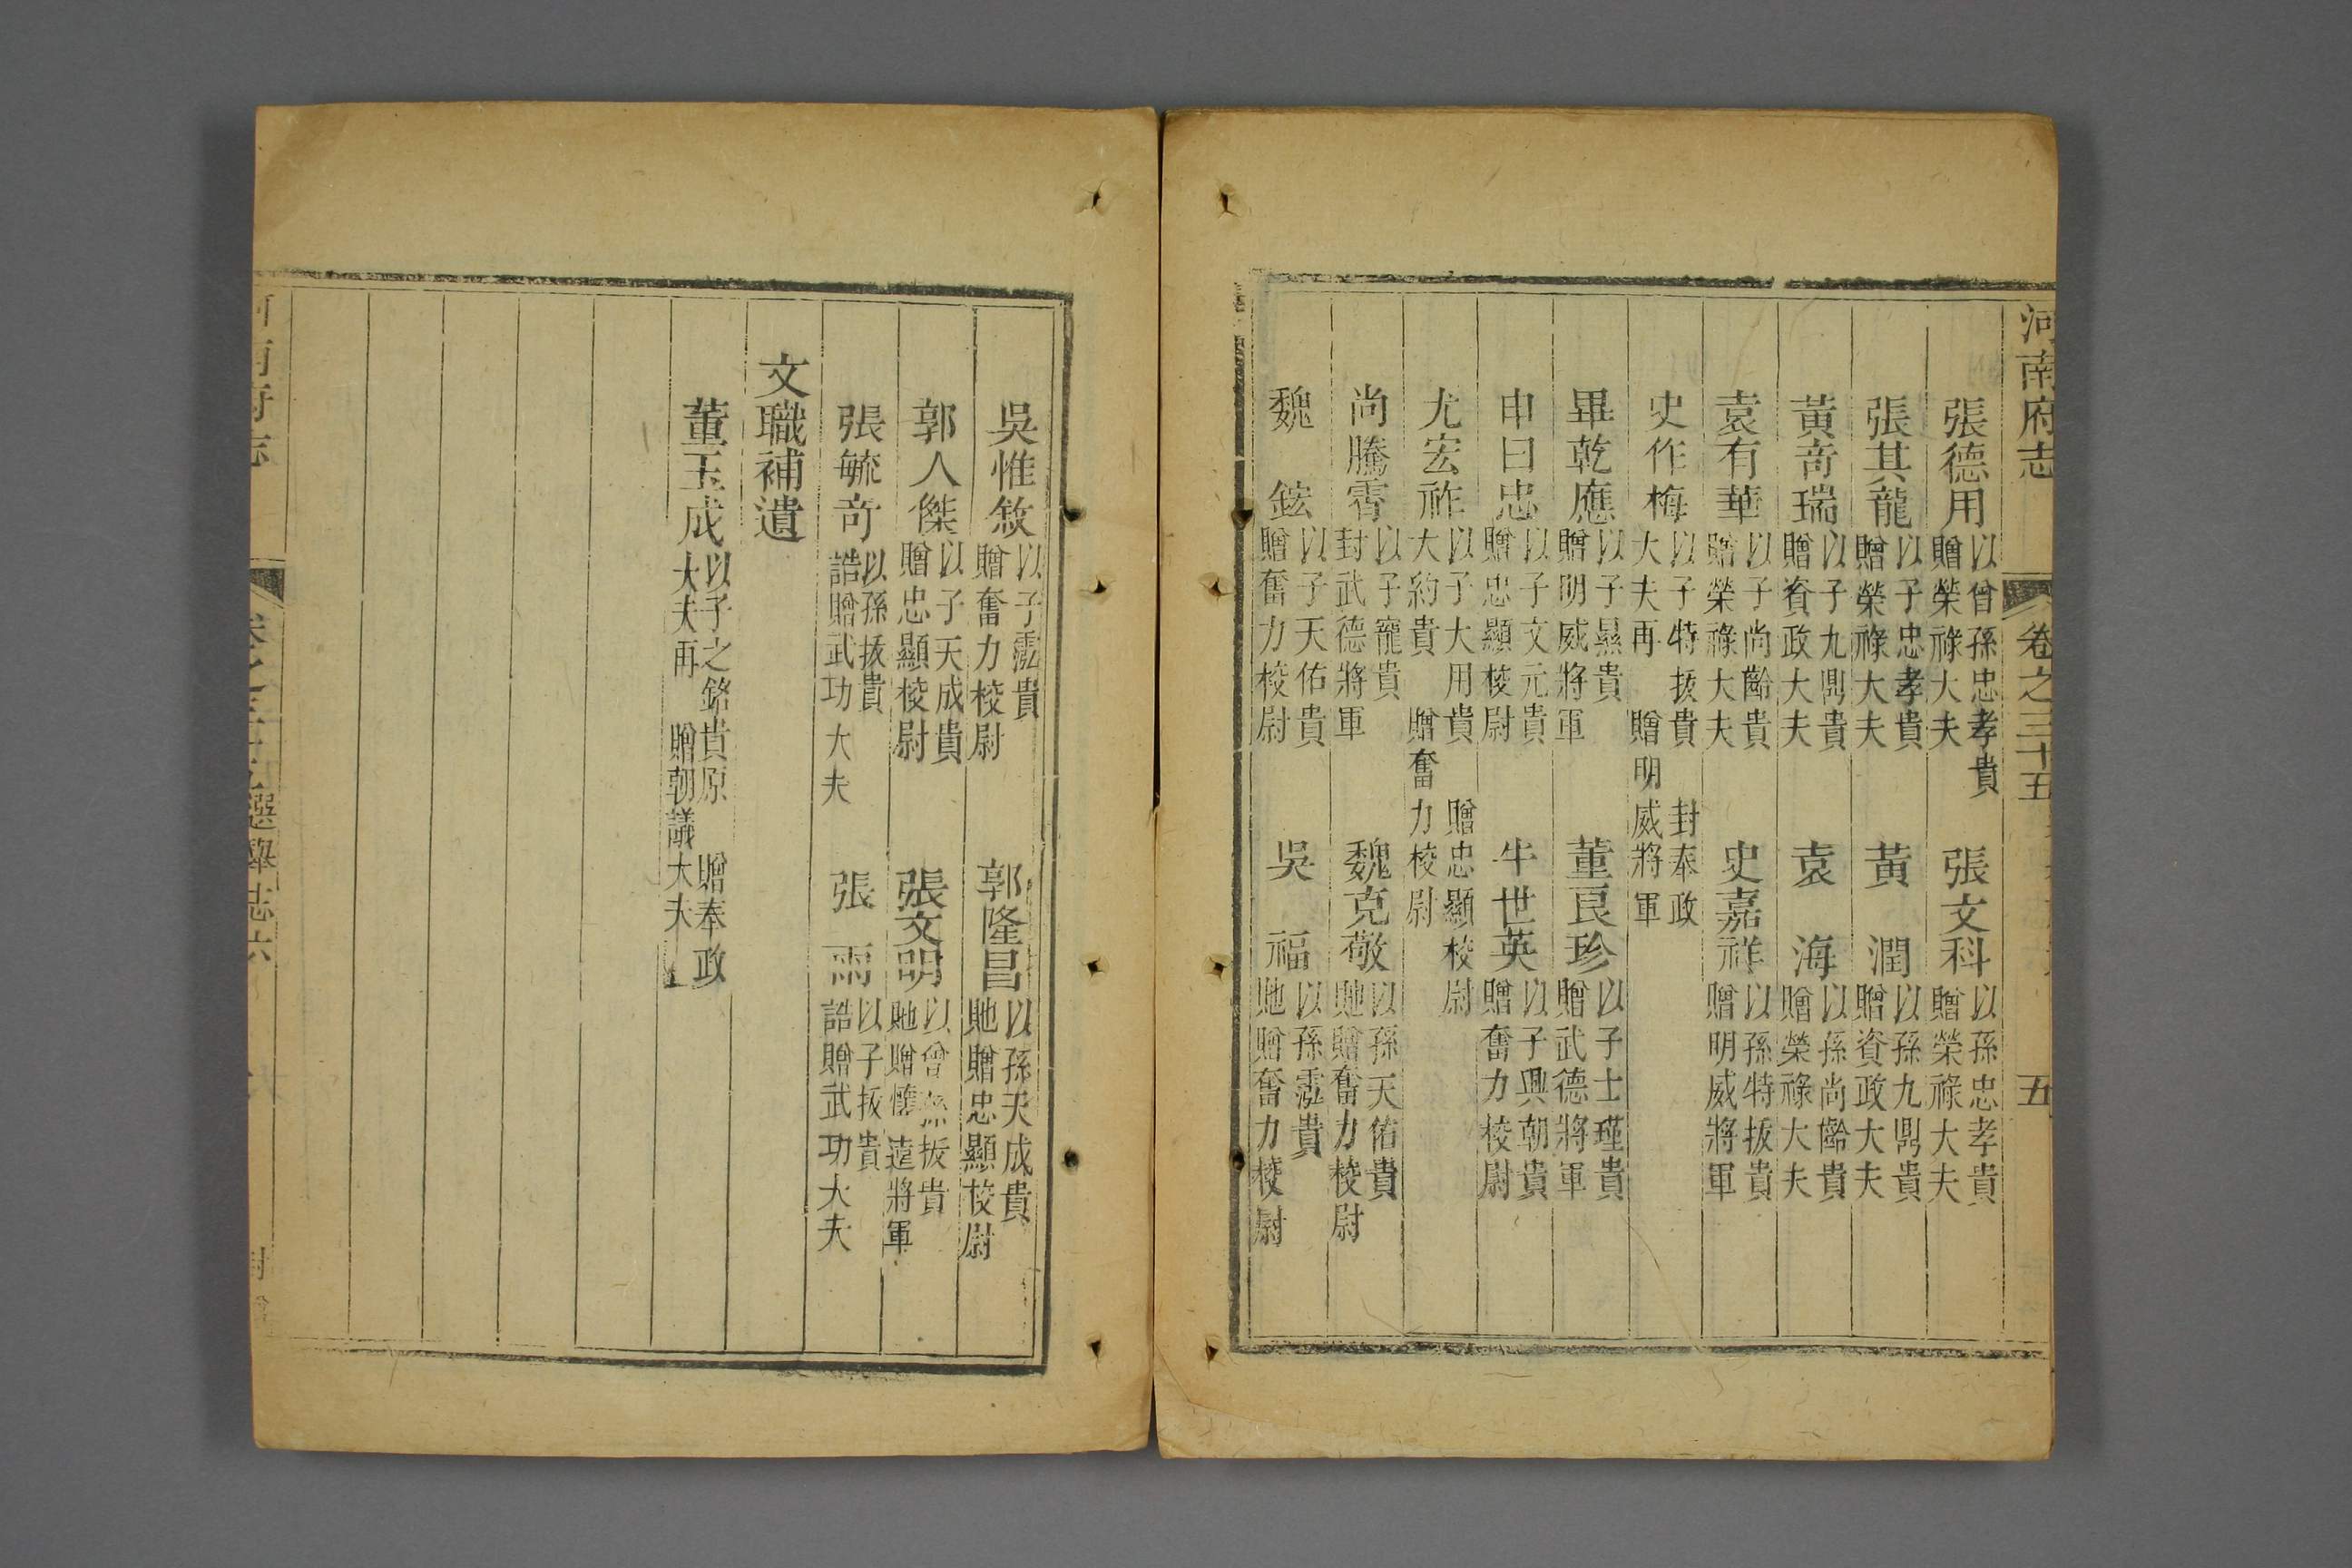 河南府志 卷之三十五 五
張德用 以曾孫忠孝貴贈榮祿大夫 張文科 以孫忠孝貴贈榮祿大夫
張其龍 以子忠孝貴贈榮祿大夫 黃潤 以孫九鼎貴贈資政大夫
黃奇瑞 以子九鼎貴贈資政大夫 袁海 以孫尚齡貴贈榮祿大夫
袁有華 以子尚齡貴贈榮祿大夫 史嘉祥 以孫特抜貴贈明威將軍
史作梅 以子特抜貴封奉政大夫再贈明威將軍
畢乾應 以子㬎貴贈明威將軍 董良珍 以子士瑾貴贈武德將軍
申曰忠 以子文元貴贈忠顯校尉 牛世英 以子興朝貴贈奮力校尉
尤宏祚 以子大用貴贈忠顯校尉大約貴贈奮力校尉
尚騰霄 以子寵貴封武德將軍 魏克敬 以孫天佑貴貤贈奮力校尉
魏鉉 以子天佑貴贈奮力校尉 吳福 以孫澐貴貤贈奮力校尉
吳惟敘 以子澐貴贈奮力校尉 郭隆昌 以孫天成貴貤贈忠顯校尉
郭人傑 以子天成貴贈忠顯校尉 張文明 以曾孫抜貴貤贈懷遠將軍
張毓奇 以孫抜貴誥贈武功大夫 張雨 以子抜貴誥贈武功大夫
文職補遺
董玉成 以子之銘貴原贈奉政大夫再贈朝議大夫
南府志 選舉志六